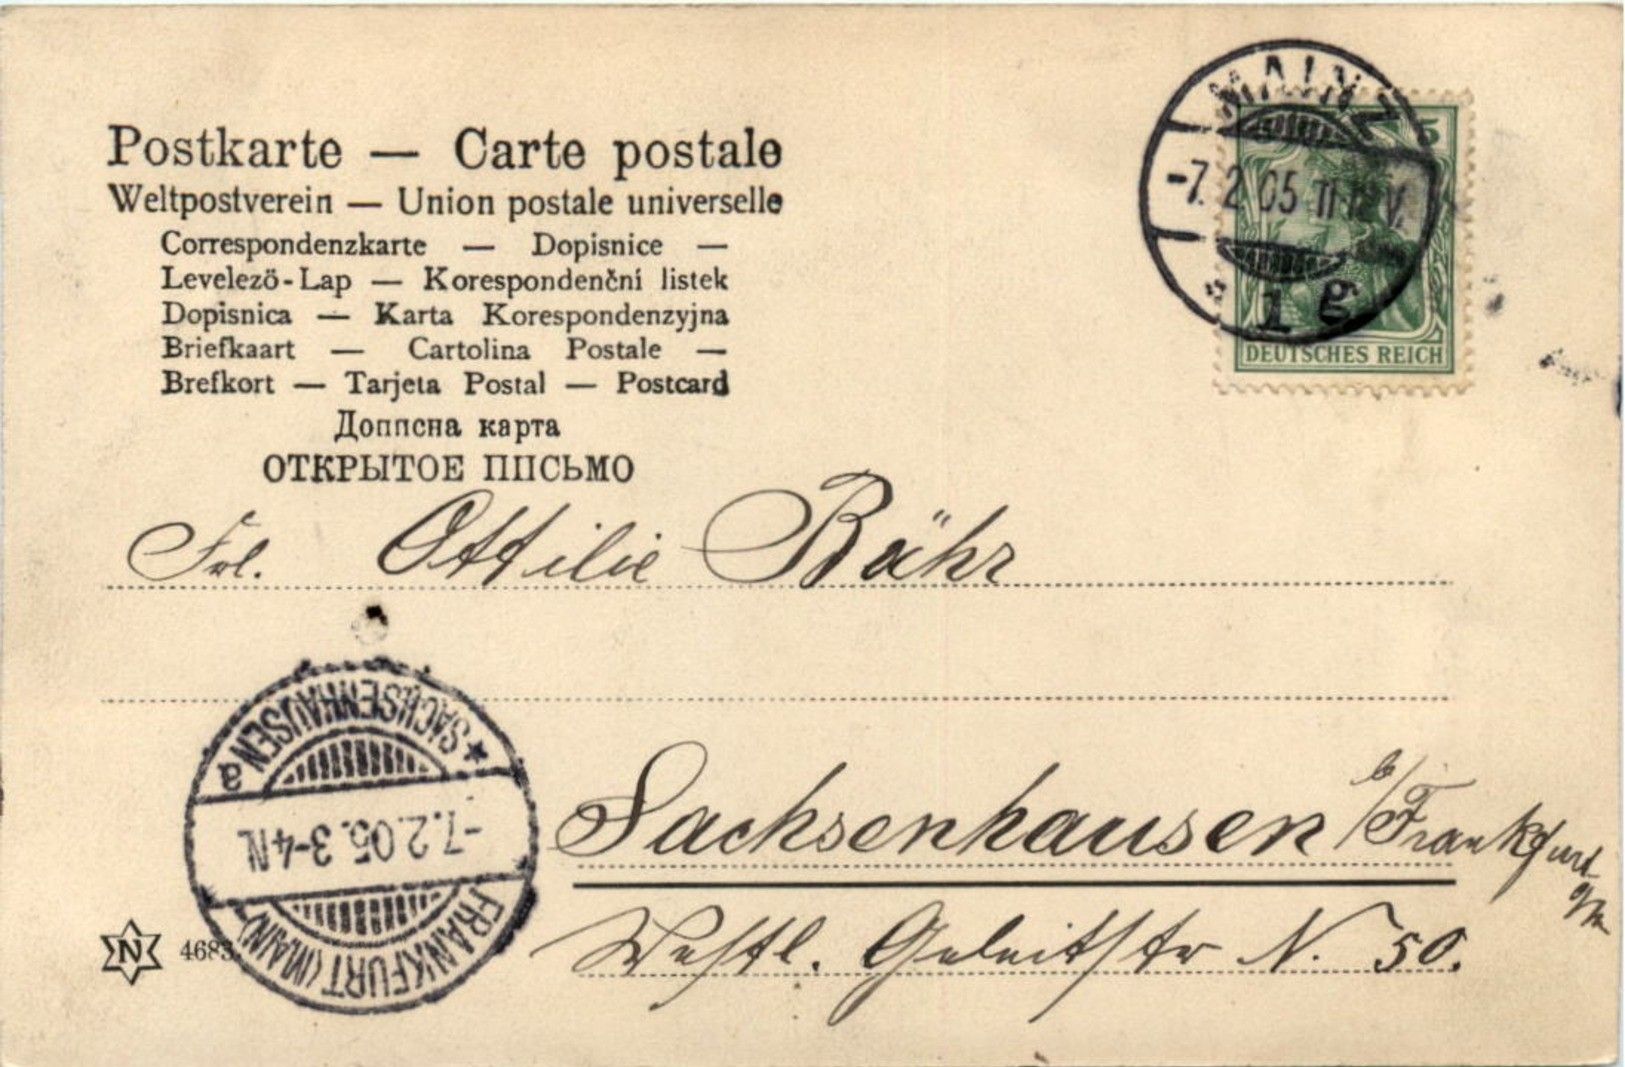 Postkarte — Carte postale
Weltpostverein — Union postale universelle
Correspondenzkarte — Dopisnice —
Levelező-Lap — Korespondenční listek
Dopisnica — Karta Korespondenzyjna
Briefkaart — Cartolina Postale —
Brefkort — Tarjeta Postal — Postcard
Доппсна карта
ОТКРЫТОЕ ППСЬМО
MAINZ
-7. 2 05 11-12 V.
* 1 g
5
DEUTSCHES REICH
Frl. Ottilie Bähr
* SACHSENHAUSEN a
-7.2.05. 3-4 N.
FRANKFURT (MAIN)
Sachsenhausen b/Frankfurt
a/M
Westl. Geleitstr N. 50.
N 4683